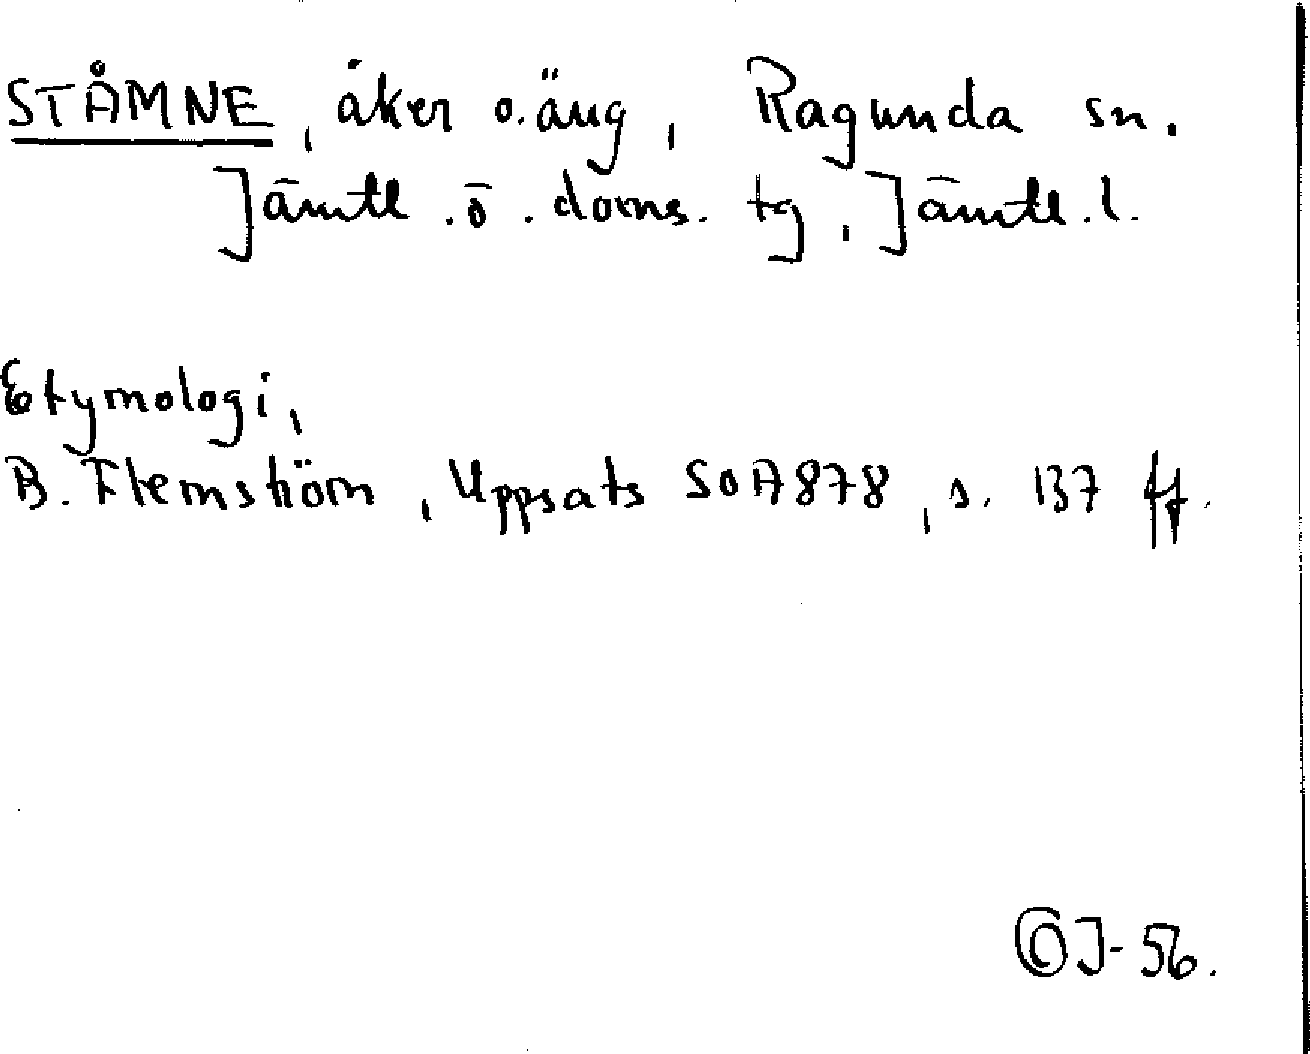 STÅMNE, åker o. äng, Ragunda sn.
Jämtl. ö. doms. tg, Jämtl. l.
Etymologi,
B. Flemström, Uppsats SOA 878, s. 137 ff.
J-56.